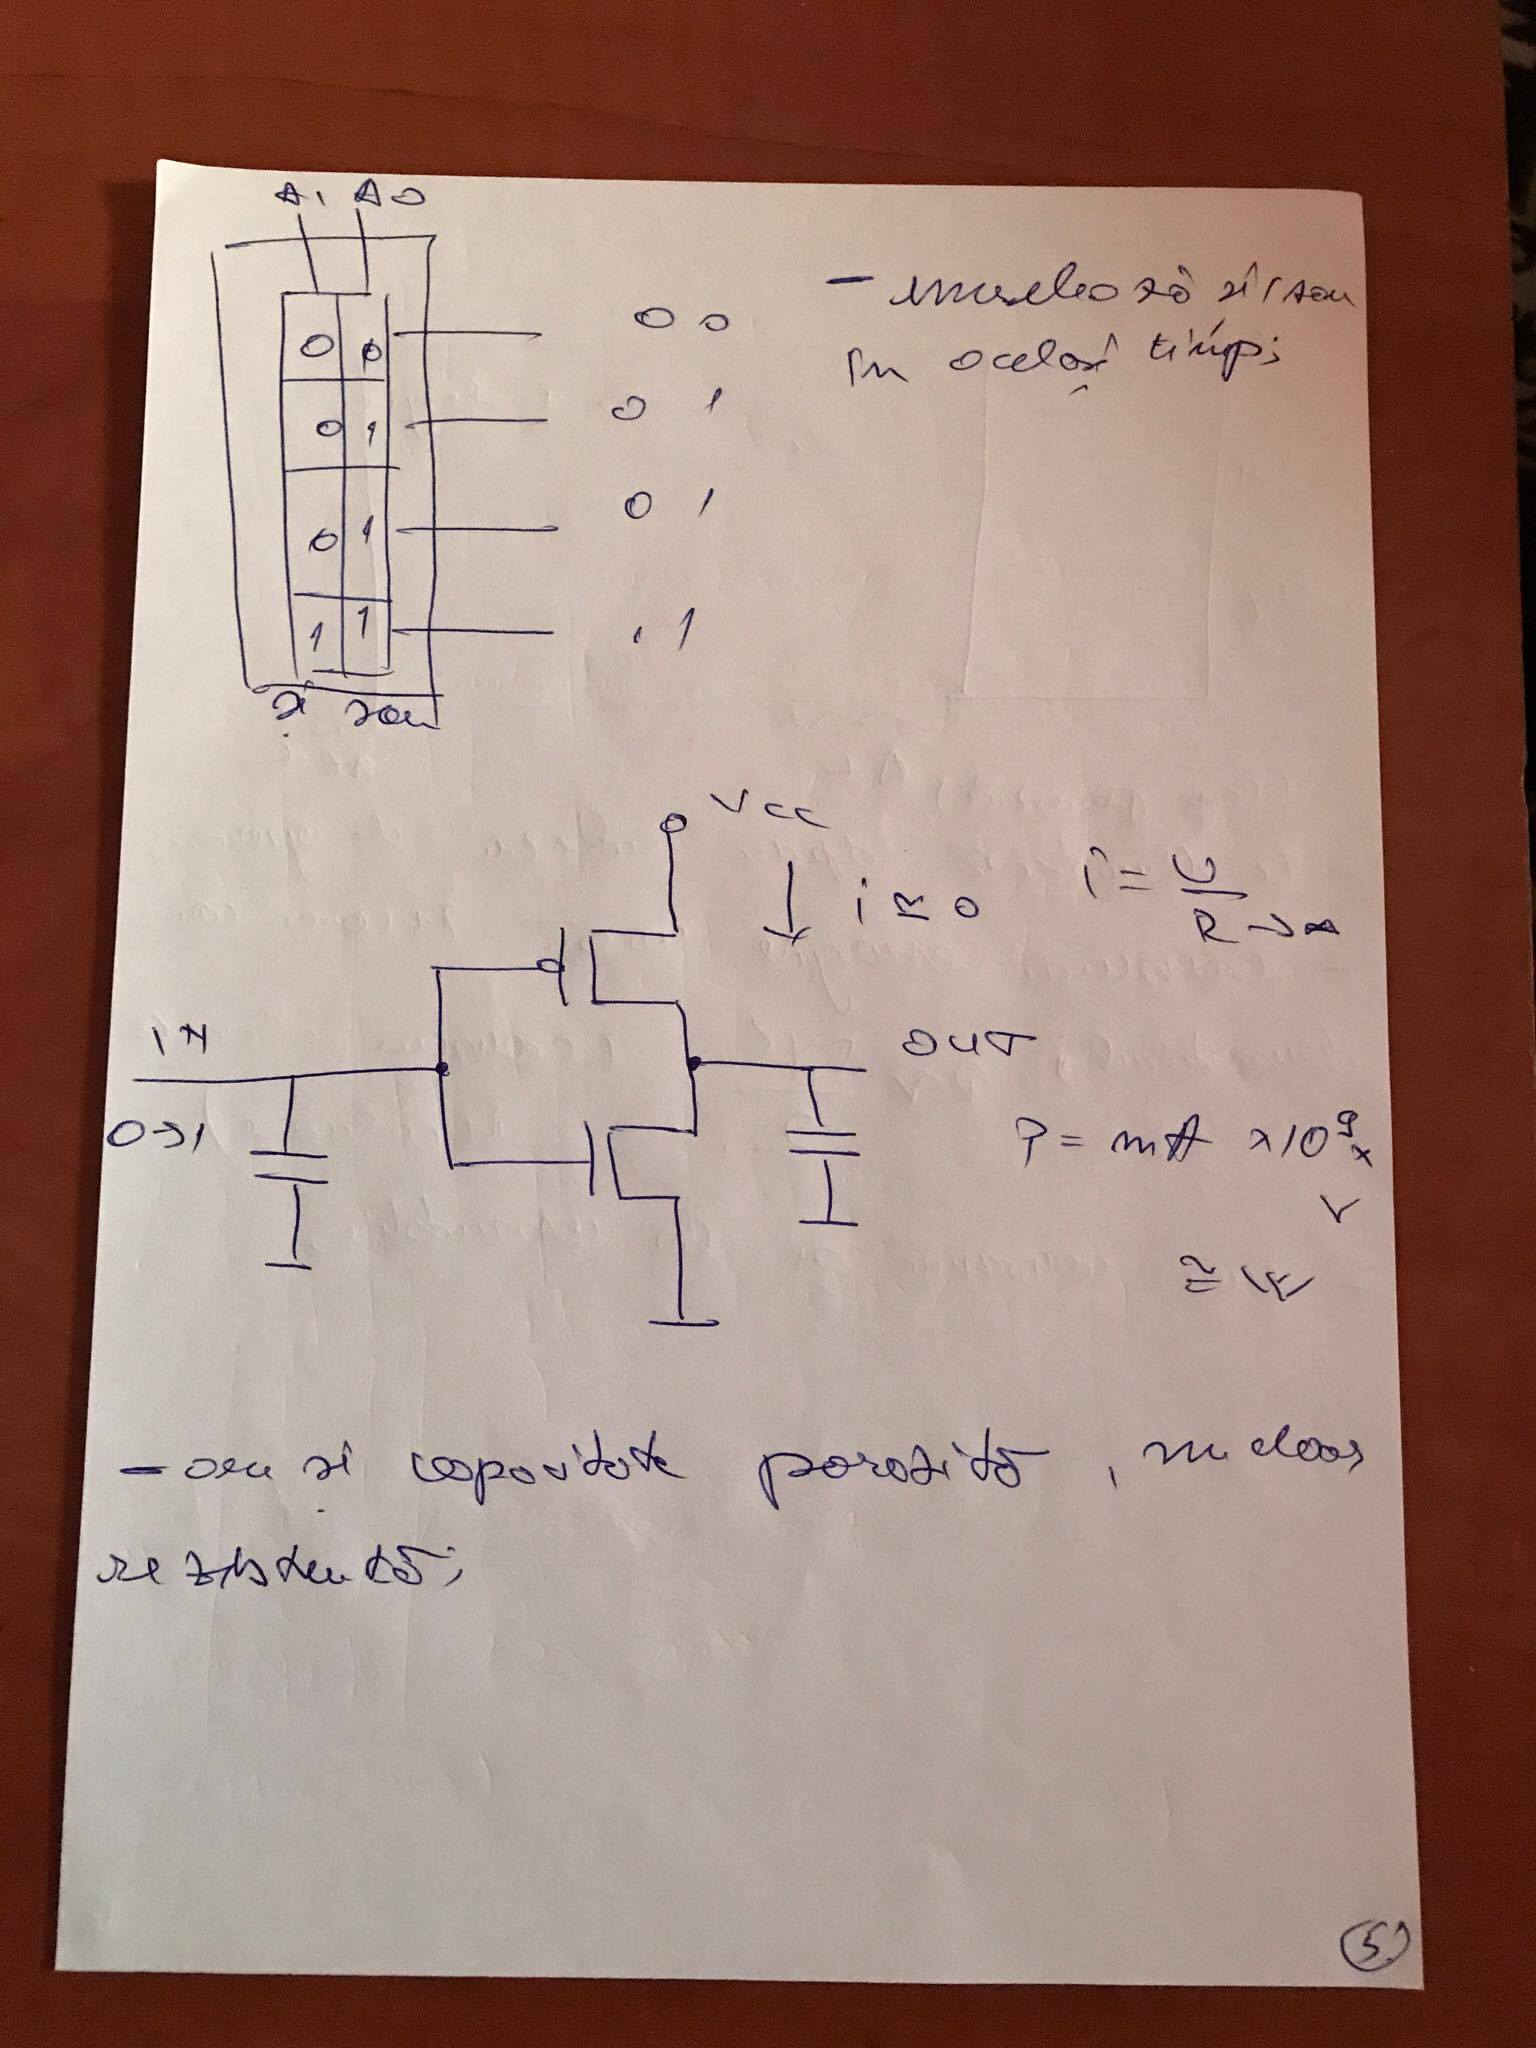 A1 A0
0 0
0 1
0 1
1 1
și sau
0 0
0 1
0 1
1 1
- să și/sau
în același timp;
Vcc
i ≈ 0
i = U / R → ∞
IN
0→1
OUT
P = mA × 10⁹ ×
V
≅ W
- am și capacitate parazită, nu doar
rezistență;
5